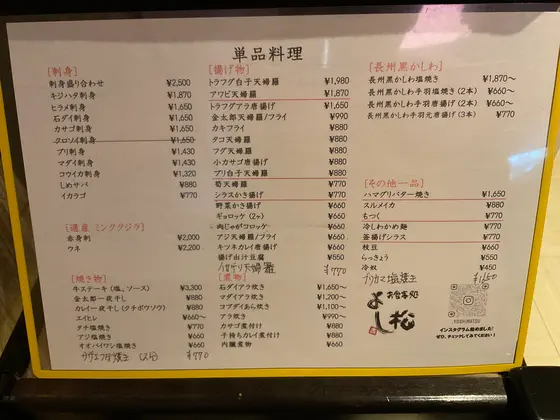 単品料理
[刺身]
刺身盛り合わせ ¥2,500
キジハタ刺身 ¥1,870
ヒラメ刺身 ¥1,650
石ダイ刺身 ¥1,650
カサゴ刺身 ¥1,650
タロソイ刺身 ¥1,650
ブリ刺身 ¥1,430
マダイ刺身 ¥1,430
コウイカ刺身 ¥1,320
しめサバ ¥880
イカウゴ ¥770
[遺産 ミンククジラ]
赤身刺 ¥2,000
ウネ ¥2,200
[焼き物]
牛ステーキ(塩、ソース) ¥3,300
金太郎一夜干し ¥880
カレイ一夜干し(タチボウソウ) ¥880
エイヒレ ¥660〜
タチ塩焼き ¥770
アジ塩焼き ¥660
オオバイワシ塩焼き ¥660
¥770
[揚げ物]
トラフグ白子天婦羅 ¥1,980
アワビ天婦羅 ¥1,870
トラフグアラ唐揚げ ¥1,650
金太郎天婦羅/フライ ¥990
カキフライ ¥880
タコ天婦羅 ¥880
フグ天婦羅 ¥880
小カサゴ唐揚げ ¥880
ブリ白子天婦羅 ¥880
筍天婦羅 ¥770
シラスかき揚げ ¥770
野菜かき揚げ ¥660
ギョロッケ(2ヶ) ¥660
肉じゃがコロッケ ¥660
アジ天婦羅/フライ ¥660
キツネカレイ唐揚げ ¥660
揚げ出汁豆腐 ¥550
天婦羅 ¥770
[煮物]
石ダイアラ炊き ¥1,650〜
マダイアラ炊き ¥1,200〜
コブダイあら炊き ¥1,100〜
アラ炊き ¥990〜
カサゴ煮付け ¥880
子持ちカレイ煮付け ¥880
内臓煮物 ¥660
[長州黒かしわ]
長州黒かしわ塩焼き ¥1,870〜
長州黒かしわ手羽塩焼き(2本) ¥660〜
長州黒かしわ手羽唐揚げ(2本) ¥660〜
長州黒かしわ手羽元唐揚げ(3本) ¥770
[その他一品]
ハマグリバター焼き ¥1,650
スルメイカ ¥880
もつく ¥770
冷しわかめ麺 ¥770
釜揚げシラス ¥770
枝豆 ¥660
らっきょう ¥550
冷奴 ¥450
ブリカマ塩焼き
お食事処
よし松
YOSHIMATSU
インスタグラム始めました!
ぜひ、チェックしてみてください!